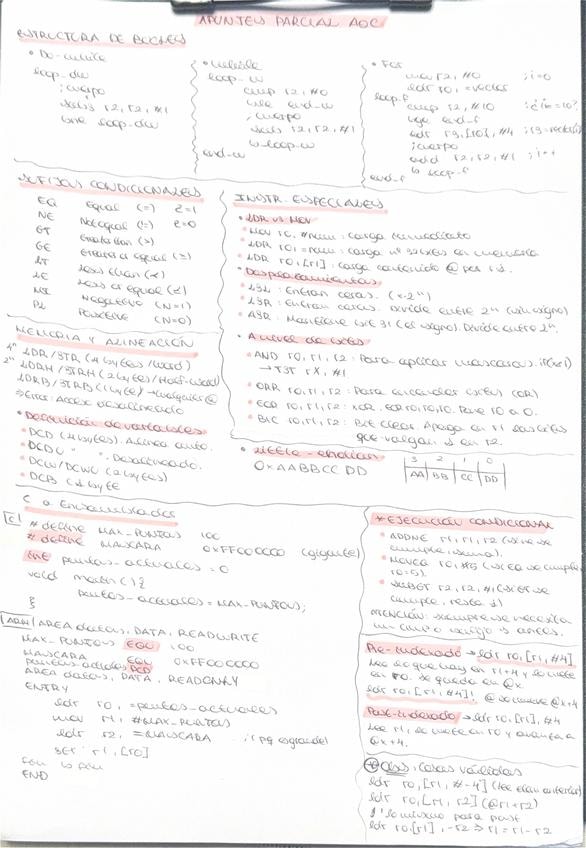 APUNTES PARCIAL AOC
ESTRUCTURA DE BUCLES
• Do-while
loop_dw
;cuerpo
subs r2, r2, #1
bne loop_dw
• While
loop_w
cmp r2, #0
end_w
;cuerpo
subs r2, r2, #1
b loop_w
end_w
• For
mov r2, #0 ;i=0
ldr r0, =vector
loop_f
cmp r2, #10
bge end_f
ldr r3, [r0], #4
;cuerpo
add r2, r2, #1 ;i++
b loop_f
end_f
SUFIJOS CONDICIONALES
EQ Equal (=) Z=1
NE Not equal (!=) Z=0
GT Greater than (>)
GE Greater or equal (≥)
LT Less than (<)
LE Less or equal (≤)
MI Negative (N=1)
PL Positive (N=0)
INSTR. ESPECIALES
• LDR vs MOV
• MOV r0, #num: carga inmediato
• LDR r0, =num: carga nº 32bits en memoria
• LDR r0, [r1]: carga contenido @ por r1.
• Desplazamientos
• LSL: Entran ceros. (×2ⁿ)
• LSR: Entran ceros. Divide entre 2ⁿ (sin signo)
• ASR: Mantiene bit 31 (el signo). Divide entre 2ⁿ.
• A nivel de bits
• AND r0, r1, r2: Para aplicar mascaras.
→ TST rX, #1
• ORR r0, r1, r2: Para encender bits (OR)
• EOR r0, r1, r2: XOR. EOR r0, r0, r0. Pone r0 a 0.
• BIC r0, r1, r2: Bit clear Apaga en r1 los bits
que valgan 1 en r2.
• Little-endian
0xAABBCCDD
3 2 1 0
AA BB CC DD
MEMORIA Y ALINEACIÓN
LDR/STR (4 bytes/word)
LDRH/STRH (2 bytes/Half-word)
LDRB/STRB (1 byte) → cualquier @
⇒ Error: Acceso desalineado
• Definición de variables
• DCD (4 bytes). Alinea auto.
• DCDU " . Desalineado.
• DCW/DCWU (2 bytes)
• DCB (1 byte
C a Ensamblador
C
# define MAX_PUNTOS 100
# define MASCARA 0xFF000000 (gigante)
int puntos_actuales = 0
void main(){
puntos_actuales = MAX_PUNTOS;
}
ARM AREA datos, DATA, READWRITE
MAX_PUNTOS EQU 100
MASCARA EQU 0xFF000000
puntos_actuales DCD
AREA datos, DATA, READONLY
ENTRY
ldr r0, =puntos_actuales
mov r1, #MAX_PUNTOS
ldr r2, =MASCARA ;pq es grande
str r1, [r0]
fin b fin
END
*EJECUCIÓN CONDICIONAL
• ADDNE r1, r1, r2 (si ne se
cumple, suma).
• MOVEQ r0, #5 (si eq se cumple,
r0=5).
• SUBGT r2, r2, #1 (si GT se
cumple, resta 1)
ATENCIÓN: siempre se necesita
un cmp o sufijo s antes.
Pre-indexado → ldr r0, [r1, #4]
Lee lo que hay en r1+4 y lo mete
en r0. Se queda en @x.
ldr r0, [r1, #4]!
Post-indexado → ldr r0, [r1], #4
Lee r1, lo mete en r0 y avanza a
@x+4.
Obs: cosas válidas
ldr r0, [r1, #-4] (lee elem anterior)
ldr r0, [r1, r2] (@r1+r2)
Lo mismo para post
ldr r0, [r1], -r2 ⇒ r1 = r1-r2